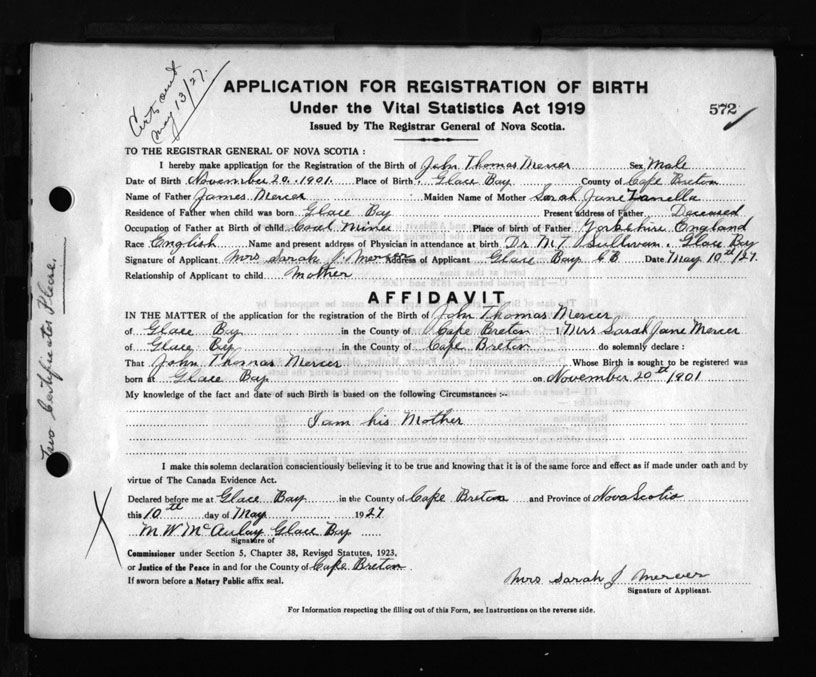 Certs sent
May 13/27.
APPLICATION FOR REGISTRATION OF BIRTH
Under the Vital Statistics Act 1919
572
Issued by The Registrar General of Nova Scotia.
TO THE REGISTRAR GENERAL OF NOVA SCOTIA:
I hereby make application for the Registration of the Birth of John Thomas Mercer Sex Male
Date of Birth November 20. 1901. Place of Birth Glace Bay County of Cape Breton
Name of Father James Mercer Maiden Name of Mother Sarah Jane
Residence of Father when child was born Glace Bay Present address of Father Deceased
Occupation of Father at Birth of child Coal Miner Place of birth of Father Yorkshire England
Race English Name and present address of Physician in attendance at birth Dr M.T. Sullivan. Glace Bay
Signature of Applicant Mrs Sarah J. Mercer Address of Applicant Glace Bay CB Date May 10th/27.
Relationship of Applicant to child Mother
AFFIDAVIT
IN THE MATTER of the application for the registration of the Birth of John Thomas Mercer
of Glace Bay in the County of Cape Breton I Mrs Sarah Jane Mercer
of Glace Bay in the County of Cape Breton do solemnly declare:
That John Thomas Mercer Whose Birth is sought to be registered was
born at Glace Bay on November 20th 1901
My knowledge of the fact and date of such Birth is based on the following Circumstances:-
I am his Mother
I make this solemn declaration conscientiously believing it to be true and knowing that it is of the same force and effect as if made under oath and by
virtue of The Canada Evidence Act.
Declared before me at Glace Bay in the County of Cape Breton and Province of Nova Scotia
this 10th day of May 1927
M W McAulay Glace Bay
Signature of
Commissioner under Section 5, Chapter 38, Revised Statutes, 1923,
or Justice of the Peace in and for the County of Cape Breton.
If sworn before a Notary Public affix seal.
Mrs Sarah J Mercer
Signature of Applicant.
For Information respecting the filling out of this Form, see Instructions on the reverse side.
Two Certificates Please.